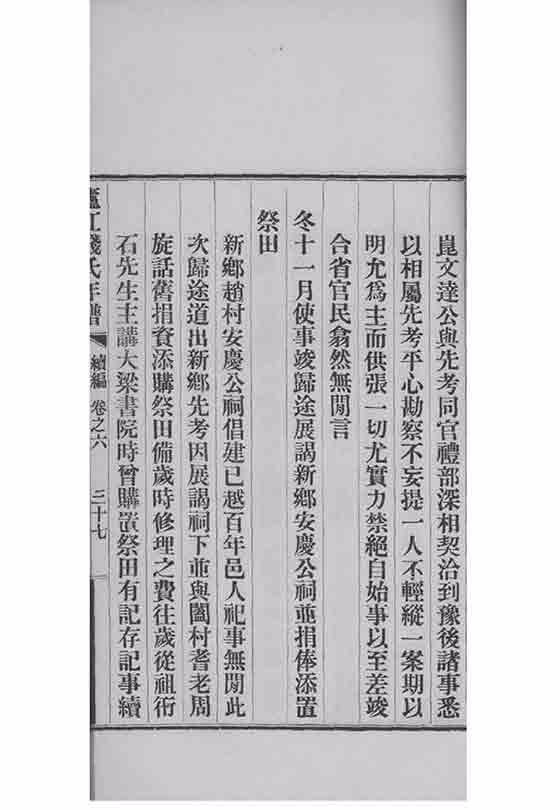 崑文達公與先考同官禮部深相契洽到豫後諸事悉
以相屬先考平心勘察不妄提一人不輕縱一案期以
明允爲主而供張一切尤實力禁絕自始事以至差竣
合省官民翕然無閒言
冬十一月使事竣歸途展謁新鄉安慶公祠並捐俸添置
祭田
新鄉趙村安慶公祠倡建已越百年邑人祀事無閒此
次歸途道出新鄉先考因展謁祠下並與闔村耆老周
旋話舊捐資添購祭田備歲時修理之費往歲從祖衎
石先生主講大梁書院時曾購置祭田有記存記事續
廬江錢氏年譜 續編 卷之六 三十七